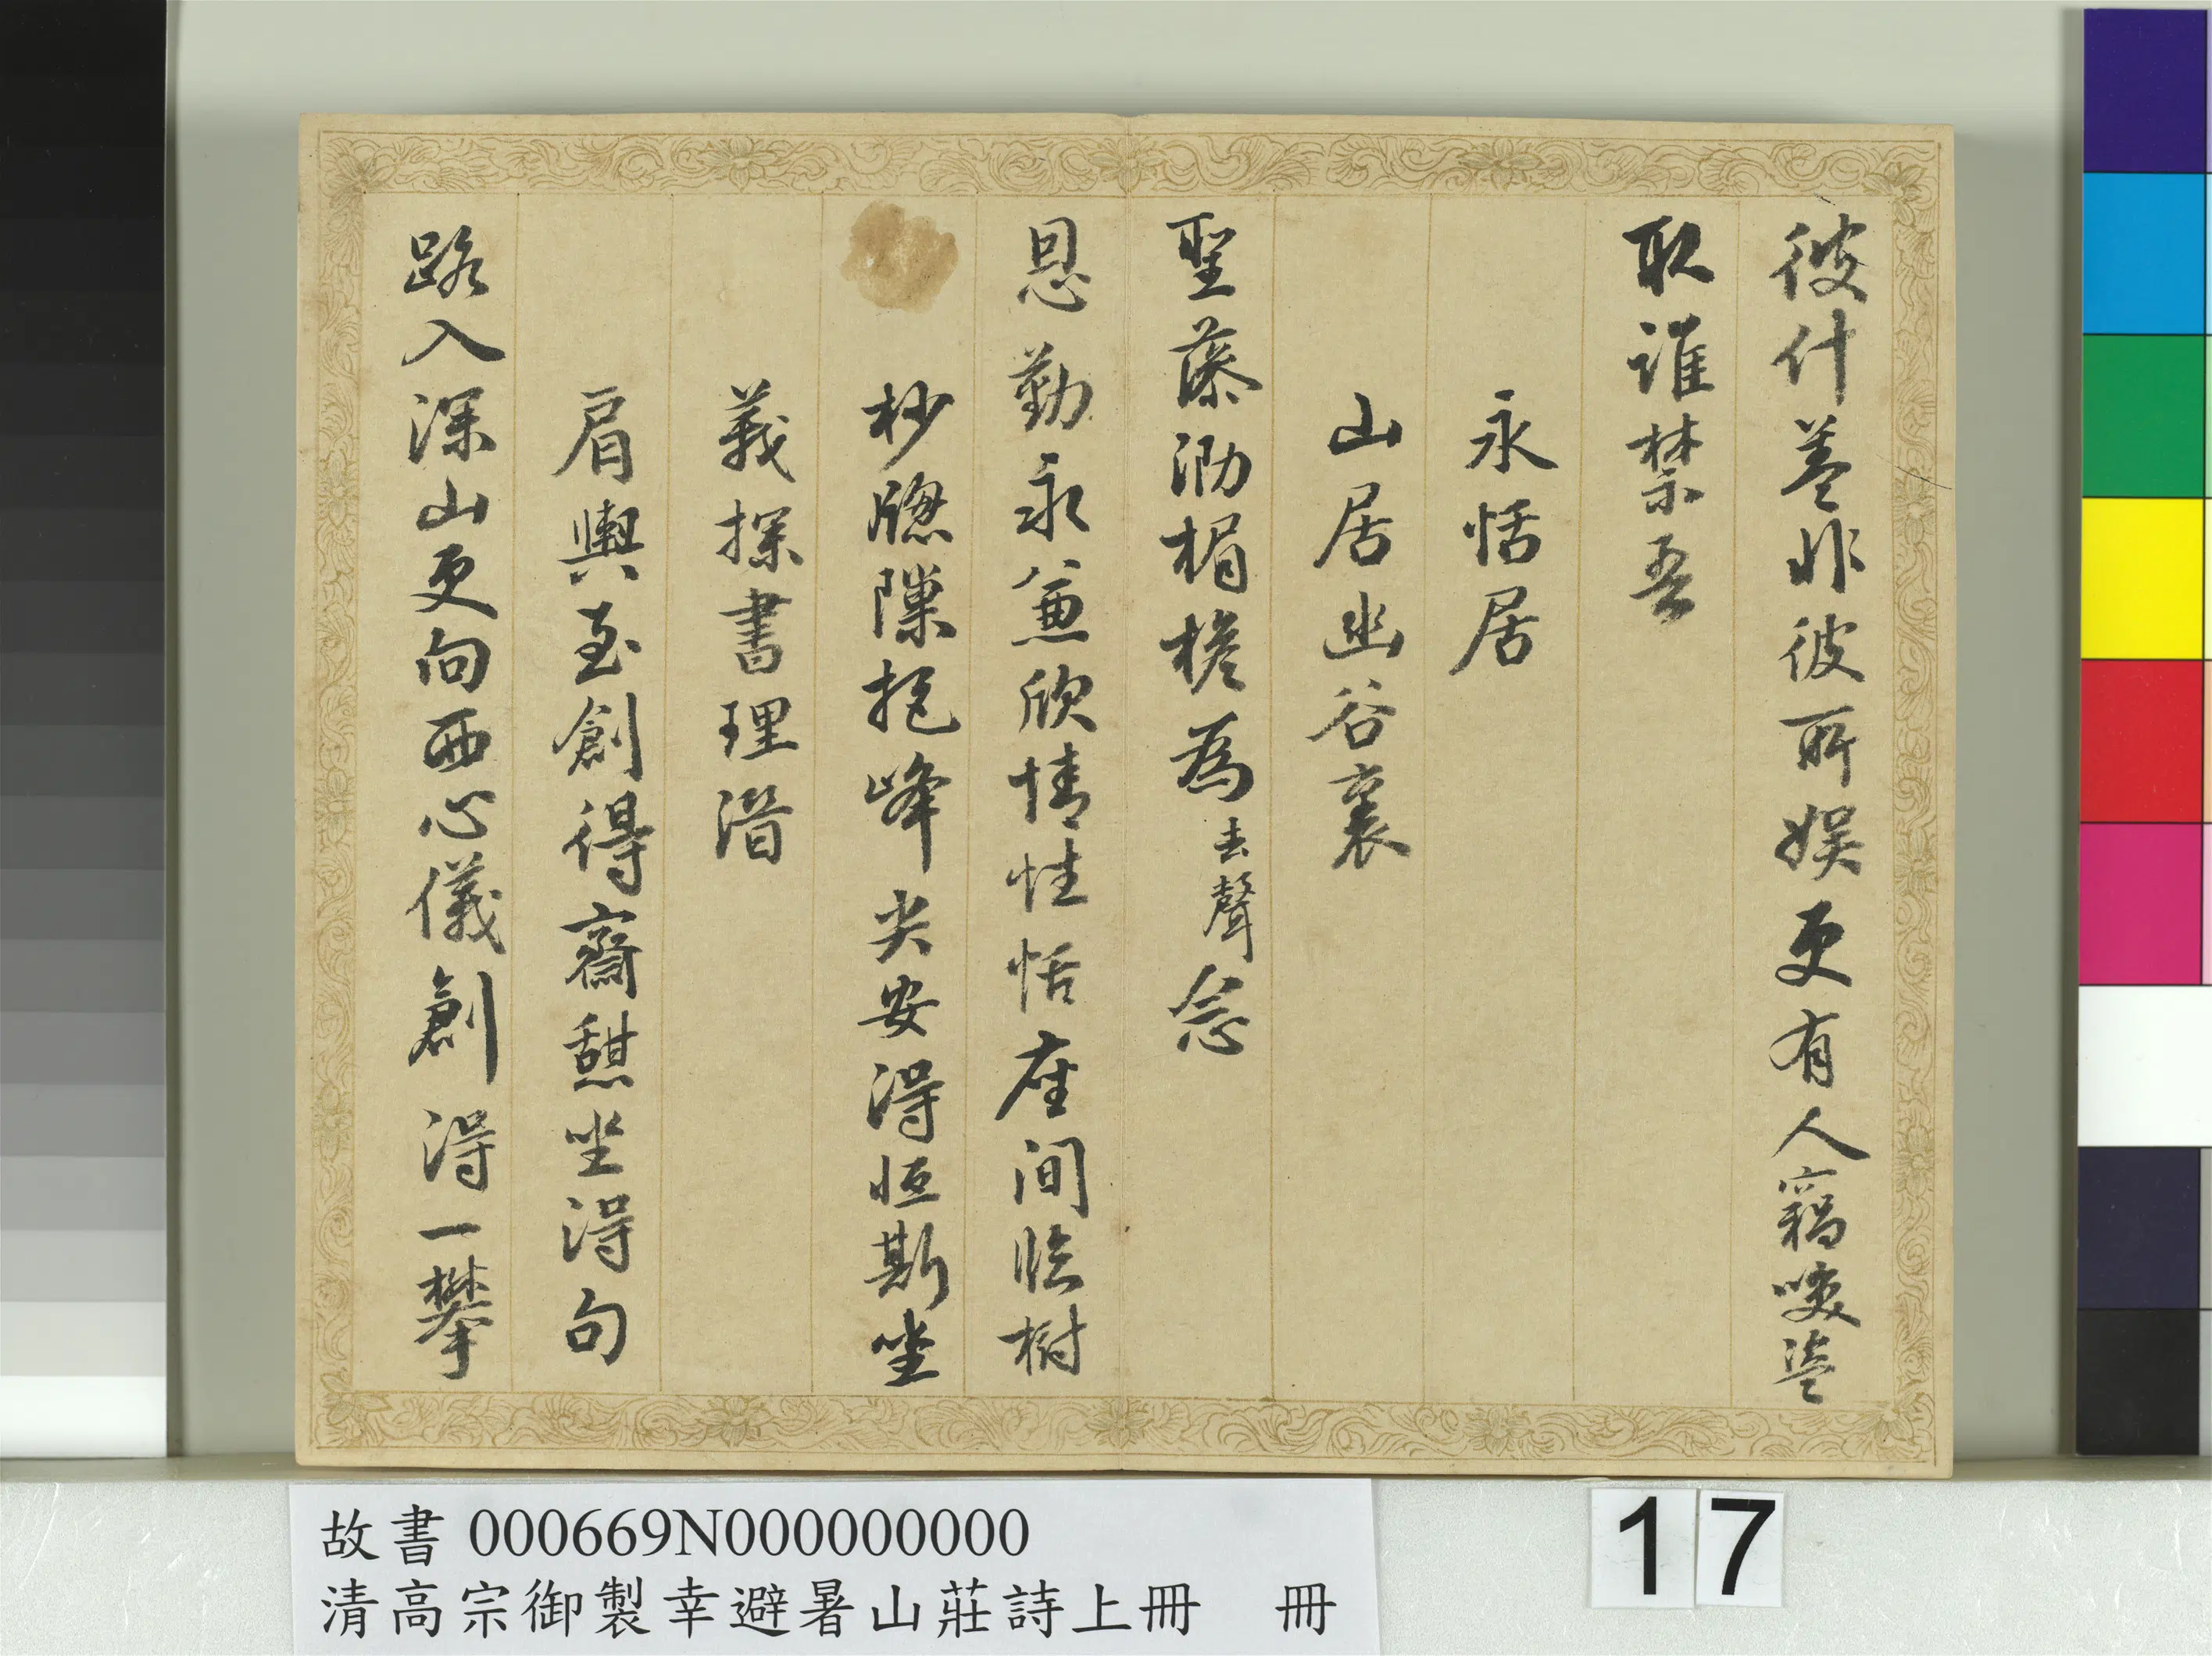 彼什葢非彼所娛更有人竊啖盜
取誰禁吾
永恬居
山居幽谷裏
聖藻泐楣檐為去聲念
恩勤永兼欣情性恬座間臨樹
杪牕隙挹峰尖安得恒斯坐
義探書理潛
肩輿至創得齋憇坐得句
路入深山更向西心儀創得一攀
故書 000669N000000000
清高宗御製幸避暑山莊詩上冊 冊
17